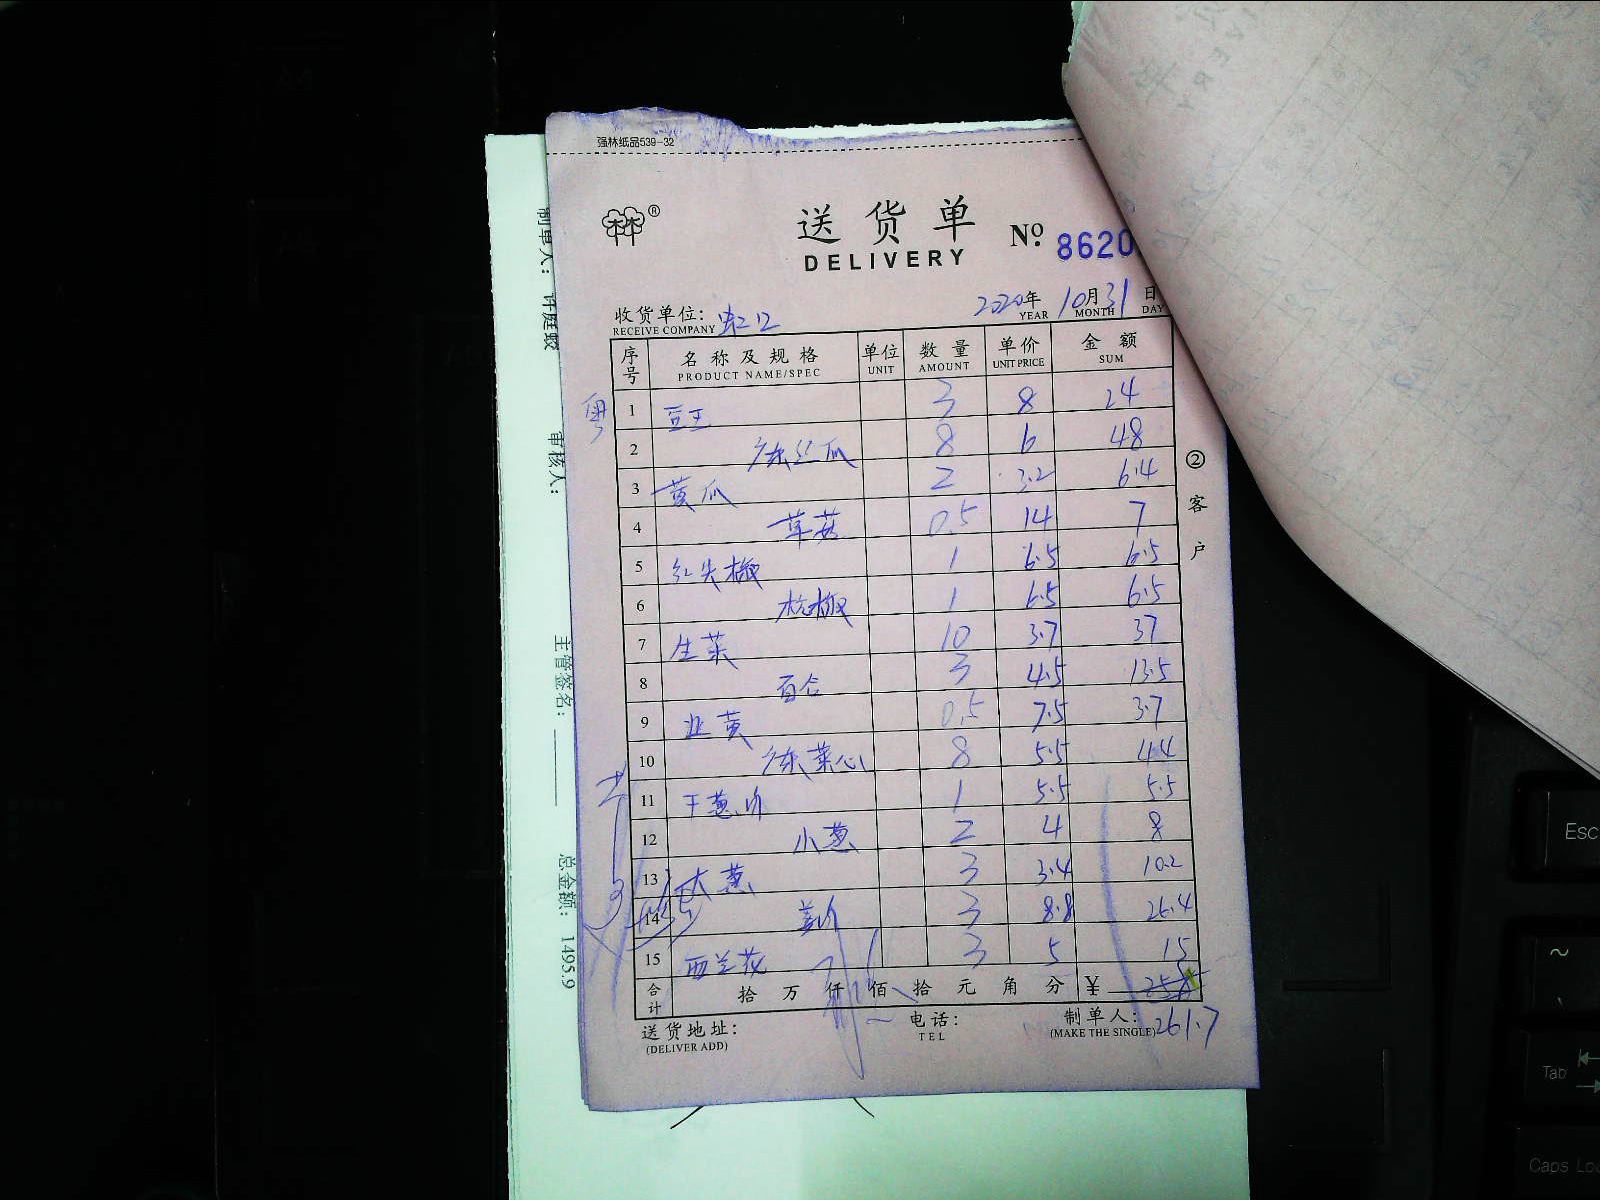 强林纸品539-32
®
送货单
DELIVERY
Nº. 8620
收货单位: 虹口
RECEIVE COMPANY
2020年 10月 31日
YEAR MONTH DAY
序号 名称及规格 单位 数量 单价 金额
PRODUCT NAME/SPEC UNIT AMOUNT UNIT PRICE SUM
粤
1 豆王 3 8 24
2 广东丝瓜 8 6 48
3 黄瓜 2 3.2 6.4
4 草菇 0.5 14 7
5 红尖椒 1 6.5 6.5
6 杭椒 1 6.5 6.5
7 生菜 10 3.7 37
8 百合 3 4.5 13.5
9 韭黄 0.5 7.5 3.7
10 广东菜心 8 5.5 44
11 干葱 1 5.5 5.5
12 小葱 2 4 8
13 大葱 3 3.4 10.2
14 3 8.8 26.4
15 西兰花 3 5 15
合计 拾 万 仟 佰 拾 元 角 分 ¥
261.7
送货地址:
(DELIVER ADD)
电话:
TEL
制单人:
(MAKE THE SINGLE)
②客户
制单人:
审核人:
主管签名:
总金额: 1495.9
Esc
~
Tab
Caps Loc